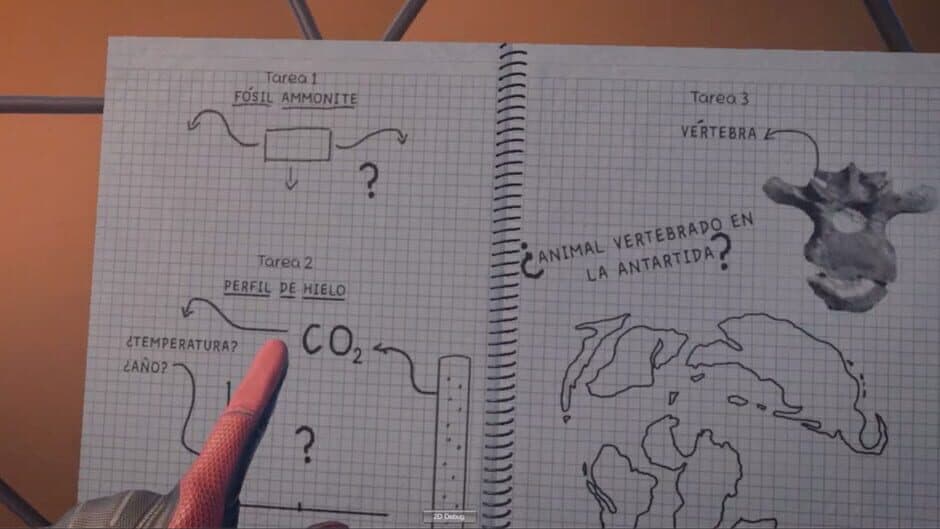 Tarea 1
FÓSIL AMMONITE
?
Tarea 2
PERFIL DE HIELO
CO₂
¿TEMPERATURA?
¿AÑO?
?
Tarea 3
VÉRTEBRA
¿ANIMAL VERTEBRADO EN
LA ANTARTIDA?
2D Debug